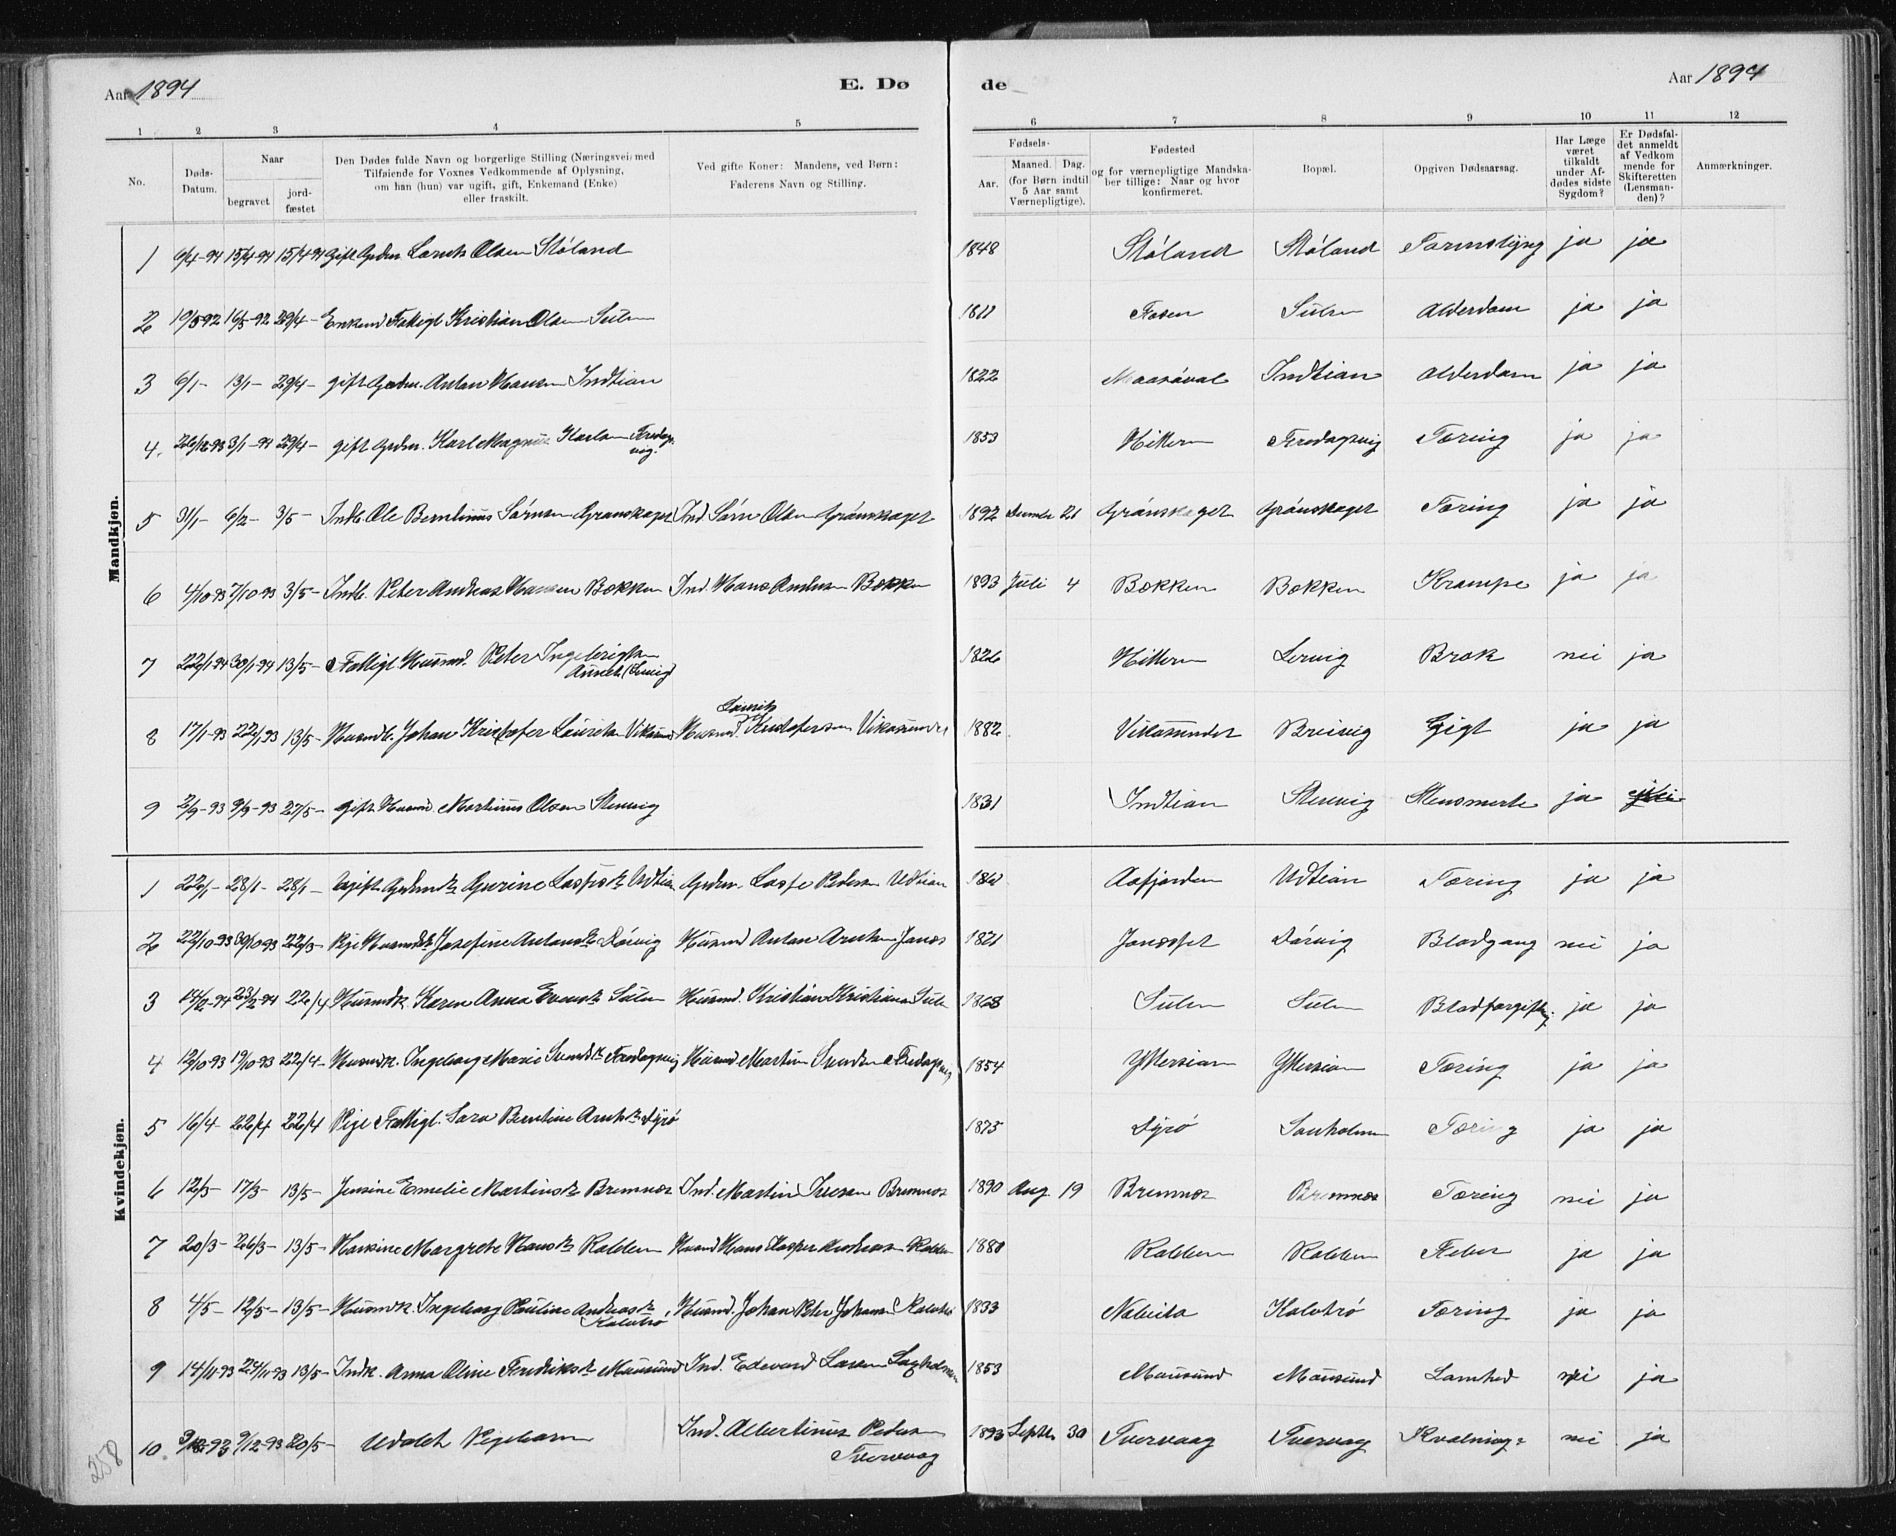 Aar 1894
E. Dø
de
Aar 1894
1 2 3 4 5 6 7 8 9 10 11 12
No.
Døds-Datum.
Naar
begravet
jord-fæstet
Den Dødes fulde Navn og borgerlige Stilling (Næringsvei) med
Tilføiende for Voxnes Vedkommende af Oplysning,
om han (hun) var ugift, gift, Enkemand (Enke)
eller fraskilt.
Ved gifte Koner: Mandens, ved Børn:
Faderens Navn og Stilling.
Fødsels-
Aar.
Maaned. Dag.
(for Børn indtil
5 Aar samt
Værnepligtige).
Fødested
og for værnepligtige Mandska-
ber tillige: Naar og hvor
konfirmeret.
Bopæl.
Opgiven Dødsaarsag.
Har Læge
været
tilkaldt
under Af-
dødes sidste
Sygdom?
Er Dødsfal-
det anmeldt
af Vedkom
mende for
Skifteretten
(Lensman-
den)?
Anmærkninger.
Mandkjøn.
1 6/4-94 15/4-94 15/4-94 Gift Grdm. Olsen Stóland 1848 Stóland Stóland ja ja
2 16/5-92 29/4- Enkemd Fattigl Kristian Olsen Sulen 1811 Fosen Sulen Alderdom ja ja
3 6/1- 13/1- 29/4- gift Grdm. Anton Hansen Indtian 1822 Maasóval Indtian Alderdom ja ja
4. 26/12-93 3/1-94 29/4- gift Grdm. Karl Magnus Karlsen Fredags-
vig. 1853 Hitteren Fredagsvig Tæring ja ja
5 31/1- 6/2- 3/5- Indb. Ole Berntinus Sørnsen Grónskaget Ind Sørn Olsen Grónskaget 1892 21 Grónskaget Grónskaget Tæring ja ja
6 4/10-93 7/10-93 3/5- Indb. Peter Andreas Hansen Bekken Ind. Hans Andersen Bekken 1893 Juli 4 Bekken Bekken Krampe ja ja
7 22/1-94 30/1-94 13/5- Fattigl. Husmd. Peter Ingebrigtsen
(Lervig) 1826 Hitteren Lervig Brok nei ja
8 17/1-93 22/1 93 13/5- Husmdb. Johan Kristofer Lauritsen Viksund Husmd. Laurits Kristofersen Vikasundet 1882 Vikasundet Breivig Gigt ja ja
9 2/9-93 9/9-93 27/5- gift Husmd Martinus Olsen Stenvig 1831 Indtian Stenvig Stensmerte ja
Kvindekjøn.
1 22/1- 28/1- 28/1- Gift Gurine Udtian Grdm. Pedersen Udtian Aafjorden Udtian Tæring ja ja
2 22/10-93 30/10-93 22/3- Pige Josefine Antonsdtr Dórvig Husmd Anton Arntsen 1821 Dórvig Blodgang nei ja
3 23/2-94 22/4 Husmdk Karen Anna Sulen Husmd. Kristian Kristiansen Sulen 1868 Sulen Sulen Blodforgiftnig. ja ja
4 12/10-93 19/10-93 22/4- Husmdk. Ingeborg Marie Fredagsvig Husmd Martin Fredagsvig 1854 Yttersian Yttersian Tæring ja ja
5 16/4- 22/4 22/4 Pige Fattigl. Sara Berntine Arntsdtr Dyrö 1875 Dyrö Tæring ja ja
6 12/3- 17/3- 13/5- Jensine Emelie Martinsdtr Bremnes Ind. Martin Bremnes 1890 Aug. 19 Bremnes Bremnes Tæring nei ja
7 20/3- 26/3- 13/5- Hansine Margrete Hansdtr Rabben Husmd Hans Kasper Rabben Rabben Rabben Feber ja ja
8 4/5- 12/5- 13/5- Husmdk. Ingeborg Pauline Andreasdtr
Kalvtrö Husmd. Johan Peter Johansen Kalvtrö 1833 Nabeita Kalvtrö Tæring ja ja
9 14/11-93 24/11-93 13/5- Indk. Anna Oline Fredriksdtr Mausund Ind. Edevard Larsen Sagholmen 1853 Mausund Mausund Lamhed nei ja
10. 9/12-93 20/5- Udöbt Pigebarn Ind. Albertinus Pedersen
Tvervaag 1893 Septbr 30 Tvervaag Tvervaag Kvælning: nei ja
258